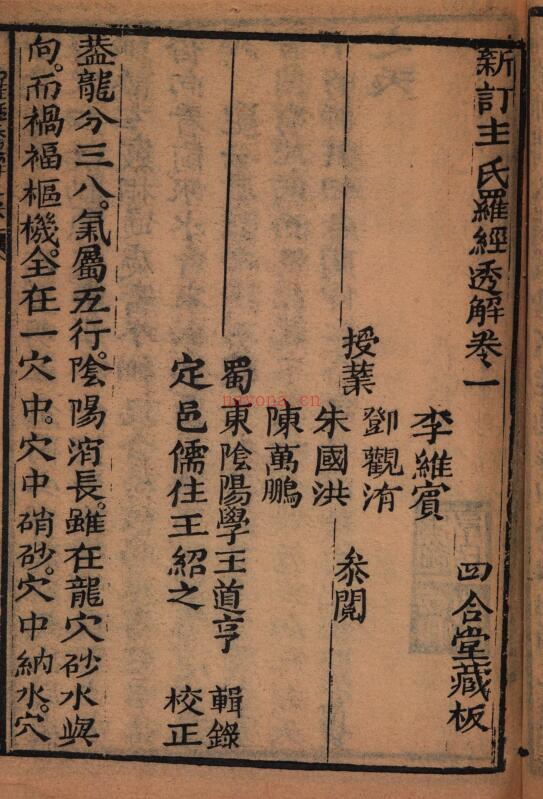 新訂主氏羅經透解卷一
四合堂藏板
李維賓
授業 鄧觀洧
朱國洪 叅閱
陳萬鵬
蜀東陰陽學王道亨 輯錄
定邑儒住王紹之 校正
葢龍分三八。氣屬五行。陰陽消長。雖在龍穴砂水與
向。而禍福樞機。全在一穴中。穴中硝砂。穴中納水。穴
nayona.cn